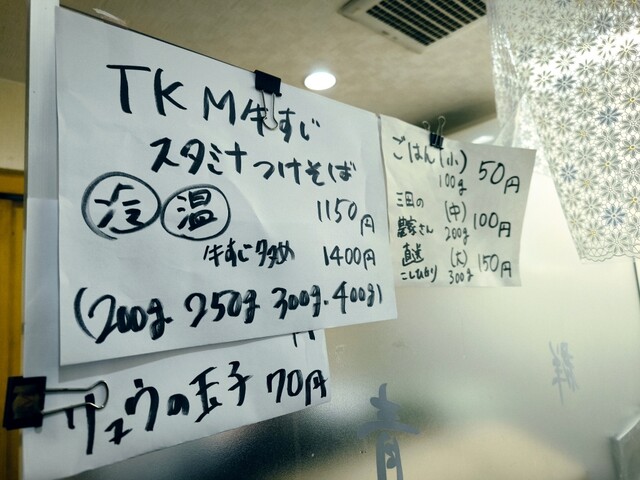 TKM牛すじ
スタミナつけそば
冷 温
1150円
牛すじ多め 1400円
(200g. 250g 300g. 400g)
リュウの玉子 70円
ごはん(小) 50円
100g
三田の
農家さん
直送
こしひかり
(中) 100円
200g
(大) 150円
300g
青